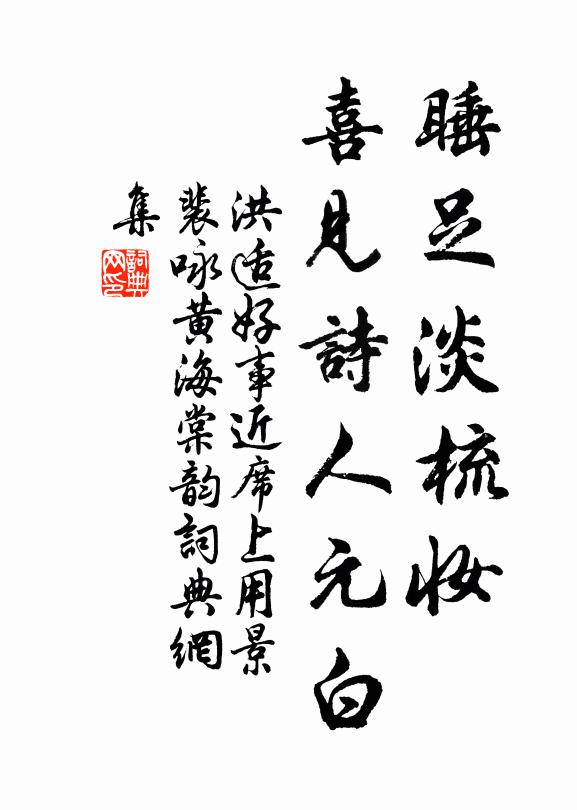 睡足淡梳妝
喜見詩人元白
洪适好事近席上用景
裴咏黄海棠韵詞典網
集
詞典網印